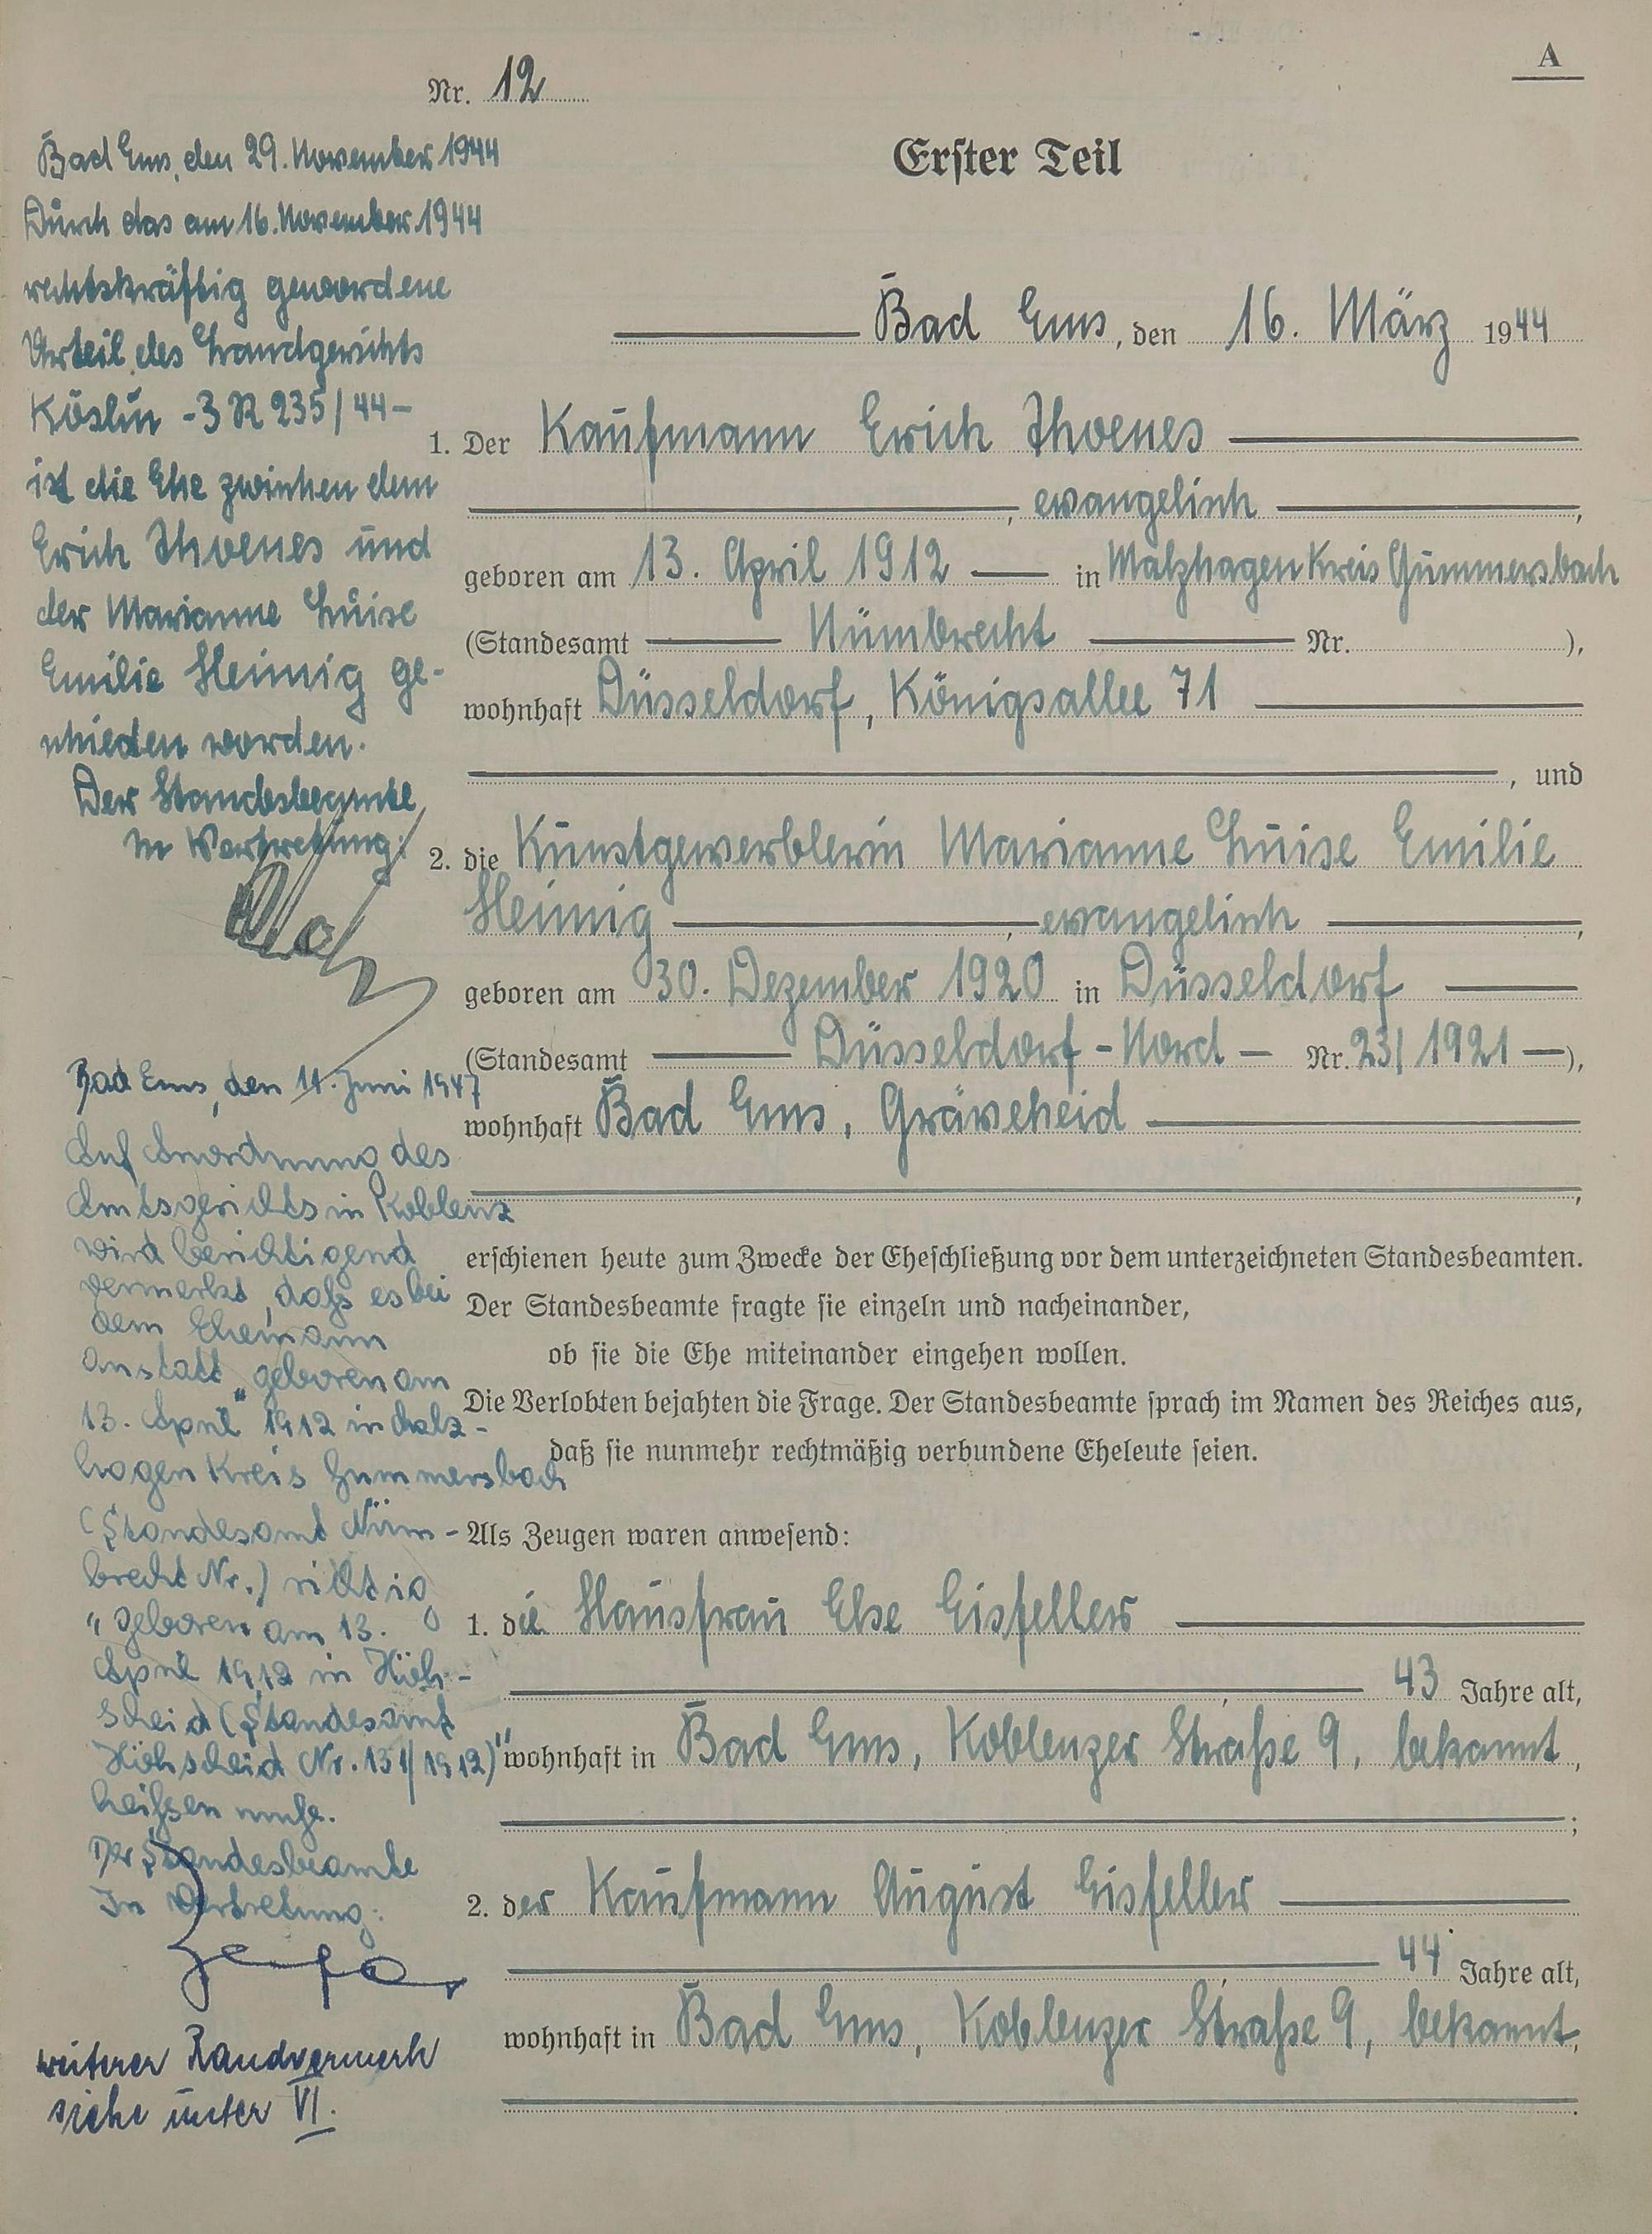 A
Nr. 12
Erster Teil
Bad Ems, den 16. März 1944
1. Der Kaufmann Erich Thoenes
, evangelisch ,
geboren am 13. April 1912 in Malzhagen Kreis Gummersbach
(Standesamt Nümbrecht Nr. ),
wohnhaft Düsseldorf, Königsallee 71
, und
2. die Kunstgewerblerin Marianne Luise Emilie
Heinnig , evangelisch ,
geboren am 30. Dezember 1920 in Düsseldorf
(Standesamt Düsseldorf-Nord Nr. 23/1921),
wohnhaft Bad Ems, Gräveheid
,
erschienen heute zum Zwecke der Eheschließung vor dem unterzeichneten Standesbeamten.
Der Standesbeamte fragte sie einzeln und nacheinander,
ob sie die Ehe miteinander eingehen wollen.
Die Verlobten bejahten die Frage. Der Standesbeamte sprach im Namen des Reiches aus,
daß sie nunmehr rechtmäßig verbundene Eheleute seien.
Als Zeugen waren anwesend:
1. die Hausfrau Else Eisfeller
43 Jahre alt,
wohnhaft in Bad Ems, Koblenzer Straße 9, bekannt,
;
2. der Kaufmann August Eisfeller
44 Jahre alt,
wohnhaft in Bad Ems, Koblenzer Straße 9, bekannt,
.
Bad Ems, den 29. November 1944
Durch das am 16. November 1944
rechtskräftig gewordene
Urteil des Landgerichts
Köslin -3 R 235/44-
ist die Ehe zwischen dem
Erich Thoenes und
der Marianne Luise
Emilie Heinnig ge-
schieden worden.
Der Standesbeamte
In Vertretung:
Bad Ems, den 11. Juni 1947
Auf Anordnung des
Amtsgerichts in Koblenz
wird berichtigend
vermerkt, daß es bei
dem Ehemann
anstatt "geboren am
13. April 1912 in Malz-
hagen Kreis Gummersbach
(Standesamt Nüm-
brecht Nr.) richtig
"geboren am 13.
April 1912 in Höh-
scheid (Standesamt
Höhscheid Nr. 151/1912)"
heißen muß.
Der Standesbeamte
In Vertretung:
weiterer Randvermerk
siehe unter VI.